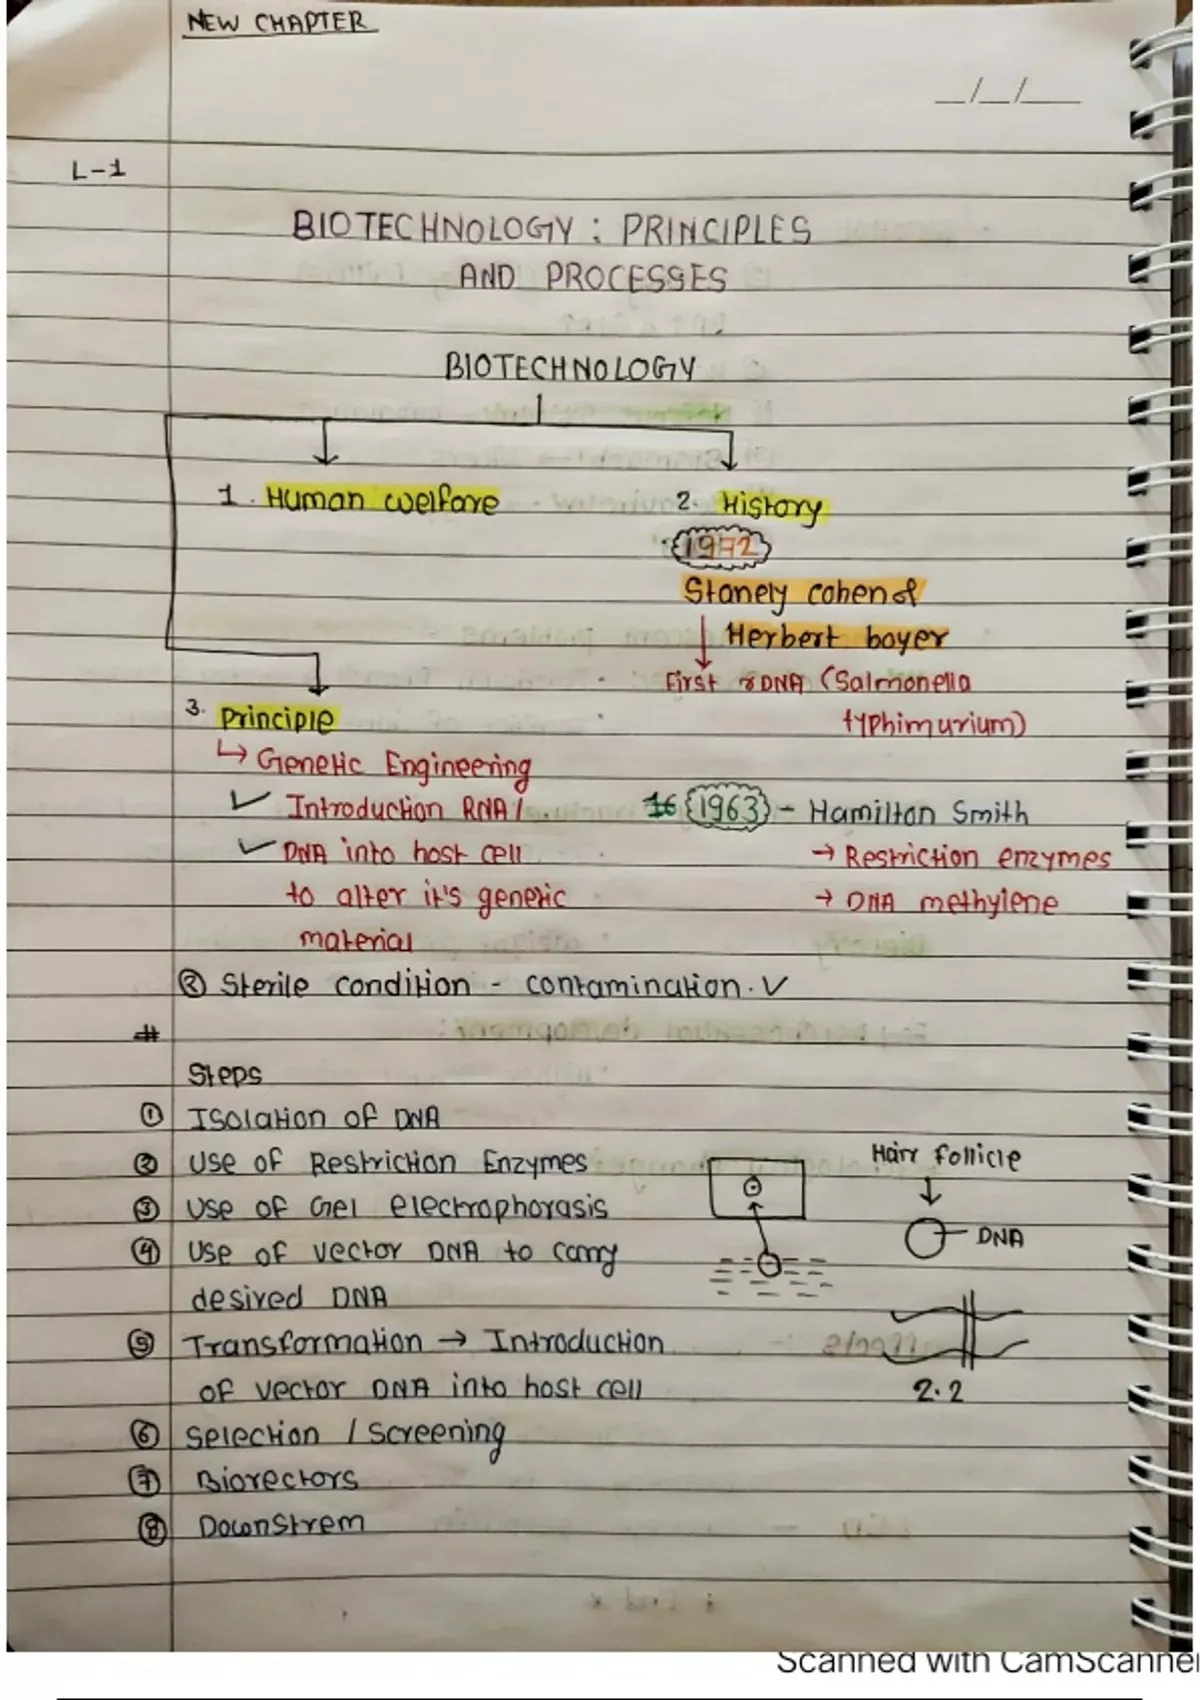 NEW CHAPTER
__/__/____
L-1
BIOTECHNOLOGY : PRINCIPLES
AND PROCESSES
BIOTECHNOLOGY
1. Human welfare
2. History
1972
Stanely cohen &
Herbert boyer
First rDNA (Salmonella
typhimurium)
3. principle
↳ Genetic Engineering
✓ Introduction RNA /
✓ DNA into host cell
to alter it's genetic
material
1963 - Hamilton Smith
→ Restriction enzymes
→ DNA methylene
② Sterile condition - contamination. ✓
#
Steps
① Isolation of DNA
② Use of Restriction Enzymes
③ Use of Gel electrophorasis
④ Use of vector DNA to carry
desired DNA
⑤ Transformation → Introduction
of vector DNA into host cell
⑥ Selection / Screening
⑦ Biorectors
⑧ Downstrem
Hair follicle
DNA
2.2
Scanned with CamScanner